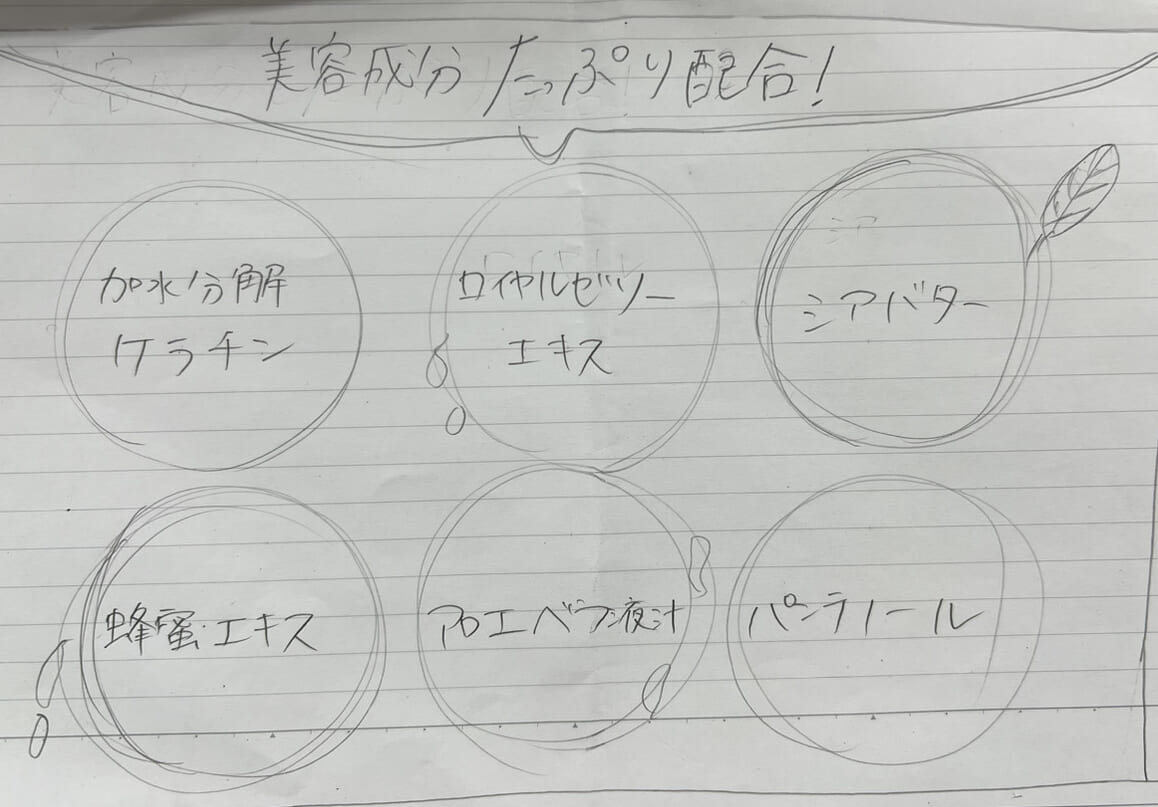 美容成分たっぷり配合!
加水分解
ケラチン
ロイヤルゼリー
エキス
シア
シアバター
蜂蜜エキス
アロエベラ液汁
パンテノール